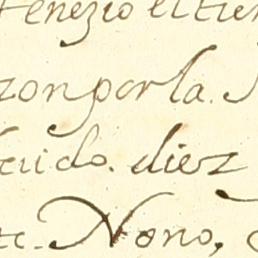 tenezio el tien
zon por la.
cuido. diez
te. Nono,